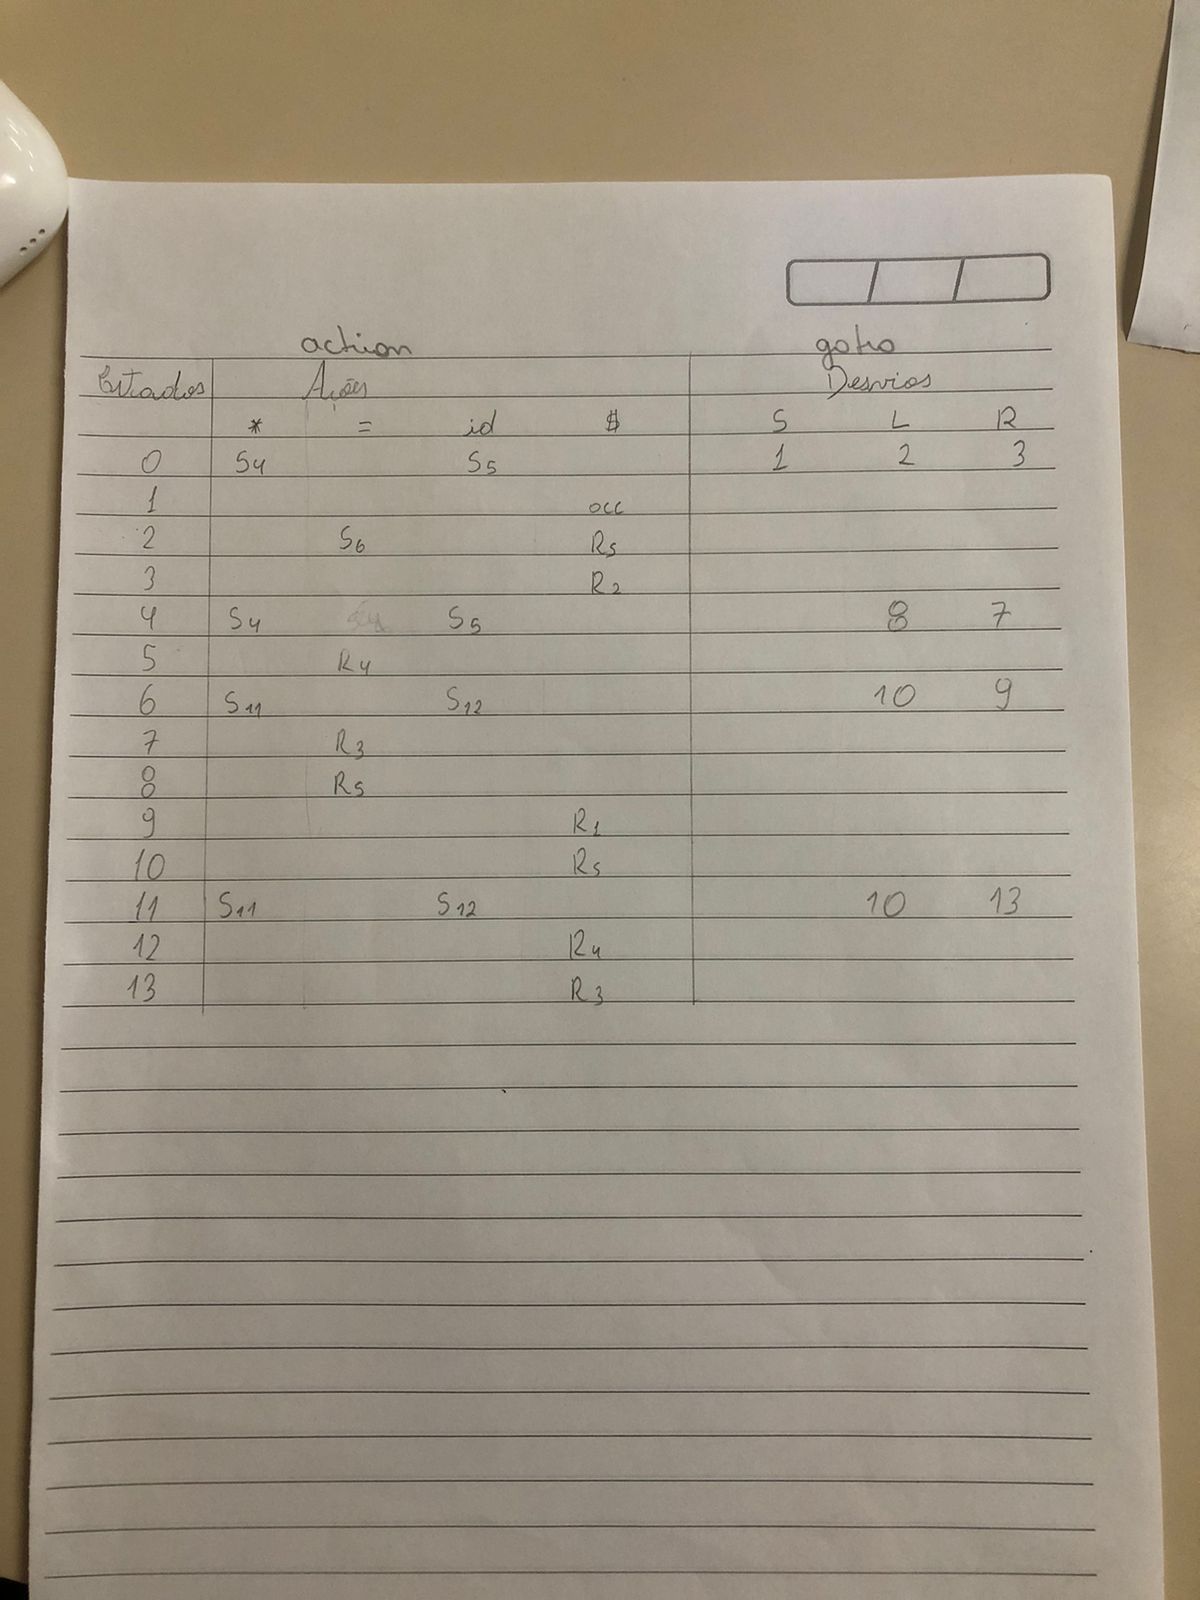 action goto
Estados Ações Desvios
* = id $ S L R
0 S4 S5 1 2 3
1 acc
2 S6 R5
3 R2
4 S4 S5 8 7
5 R4
6 S11 S12 10 9
7 R3
8 R5
9 R1
10 R5
11 S11 S12 10 13
12 R4
13 R3